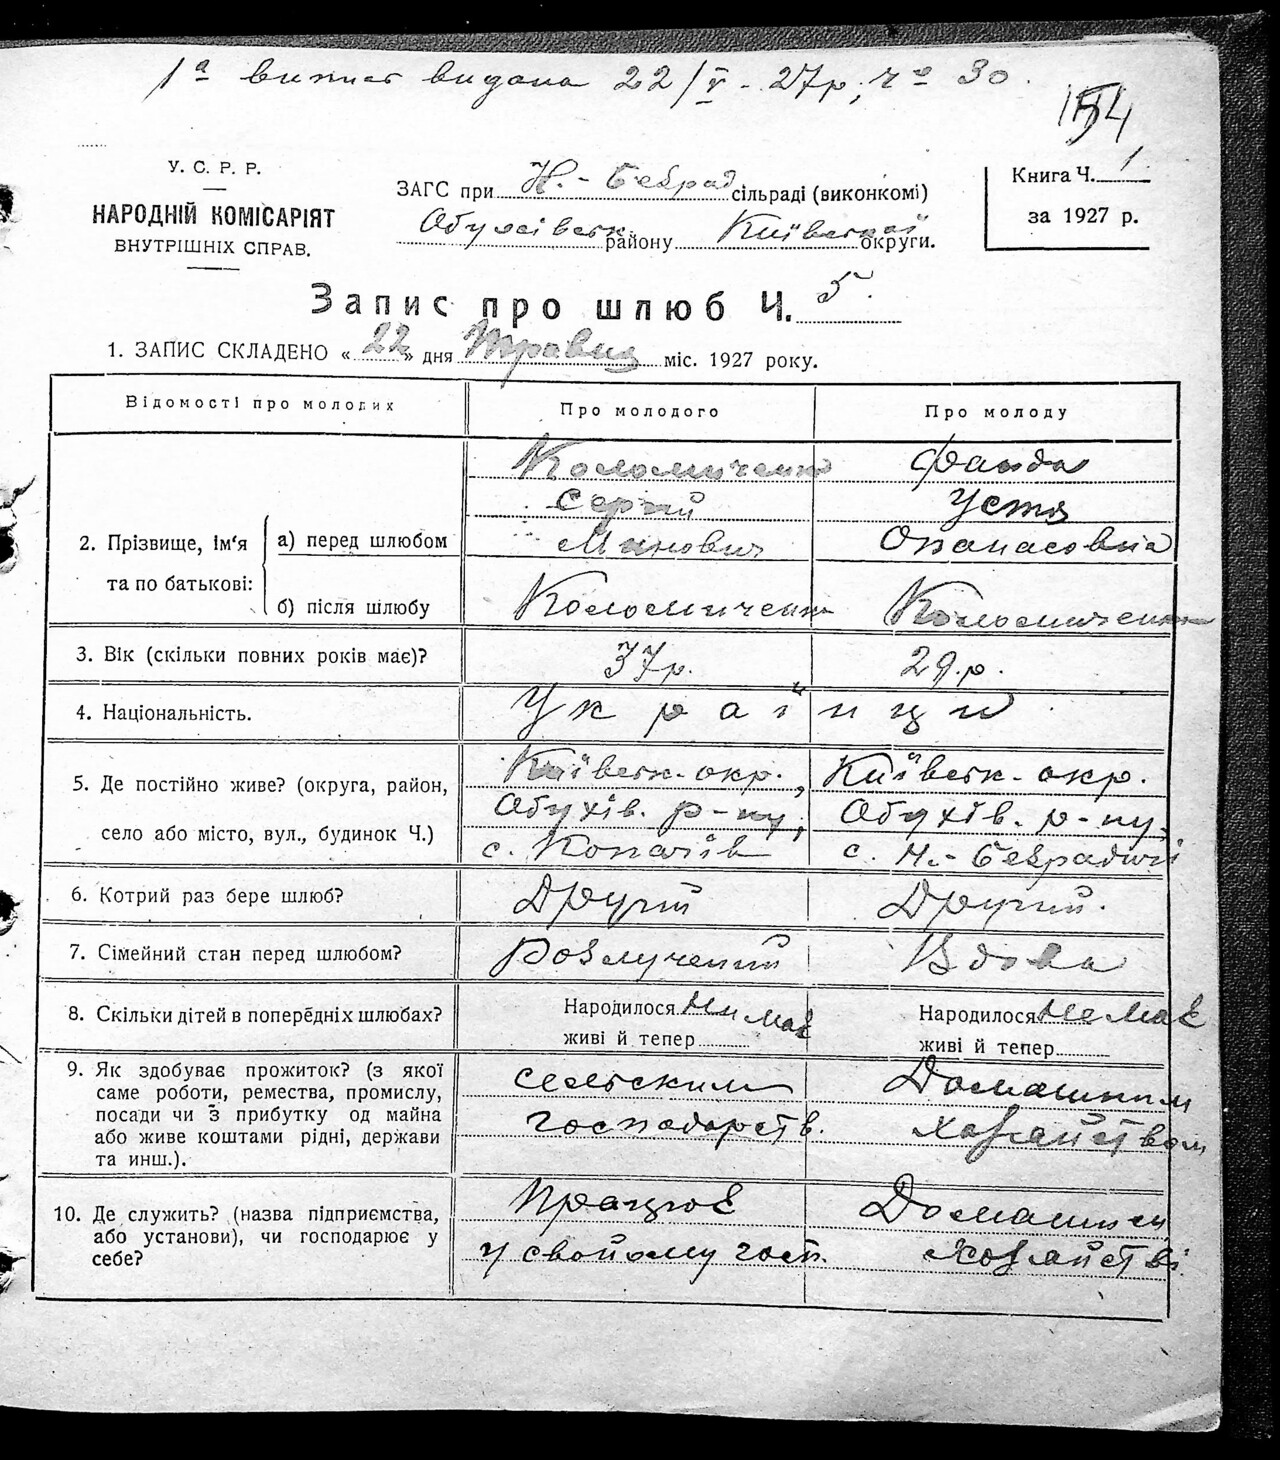 1ª випис видана 22/V - 27р, ч° 30.
154
У. С. Р. Р.
НАРОДНІЙ КОМІСАРІЯТ
ВНУТРІШНІХ СПРАВ.
ЗАГС при Н.-Безрад сільраді (виконкомі)
Обухівськ. району Київської округи.
Книга Ч. 1
за 1927 р.
Запис про шлюб Ч. 5.
1. ЗАПИС СКЛАДЕНО «22» дня Травня міс. 1927 року.
Відомості про молодих Про молодого Про молоду
2. Прізвище, ім'я та по батькові:
а) перед шлюбом
Коломиченко
Сергій
Минович
Фанда
Устя
Опанасовна
б) після шлюбу Коломиченко Коломиченко
3. Вік (скільки повних років має)? 37р. 29.р.
4. Національність. Українци
5. Де постійно живе? (округа, район,
село або місто, вул., будинок Ч.)
Київськ. окр.,
Обухів. р-ну,
с. Копачів
Київськ. окр.
Обухів. р-ну,
с. Н.-Безрадичі
6. Котрий раз бере шлюб? Другий Другий.
7. Сімейний стан перед шлюбом? Розлучений Вдова
8. Скільки дітей в попередніх шлюбах?
Народилося Ни має
живі й тепер
Народилося Не має
живі й тепер
9. Як здобуває прожиток? (з якої
саме роботи, ремества, промислу,
посади чи з прибутку од майна
або живе коштами рідні, держави
та инш.).
сельским
господарств.
Домашним
хозайством
10. Де служить? (назва підприємства,
або установи), чи господарює у
себе?
Працює
у свойому госп.
Домашнем
хозайстві